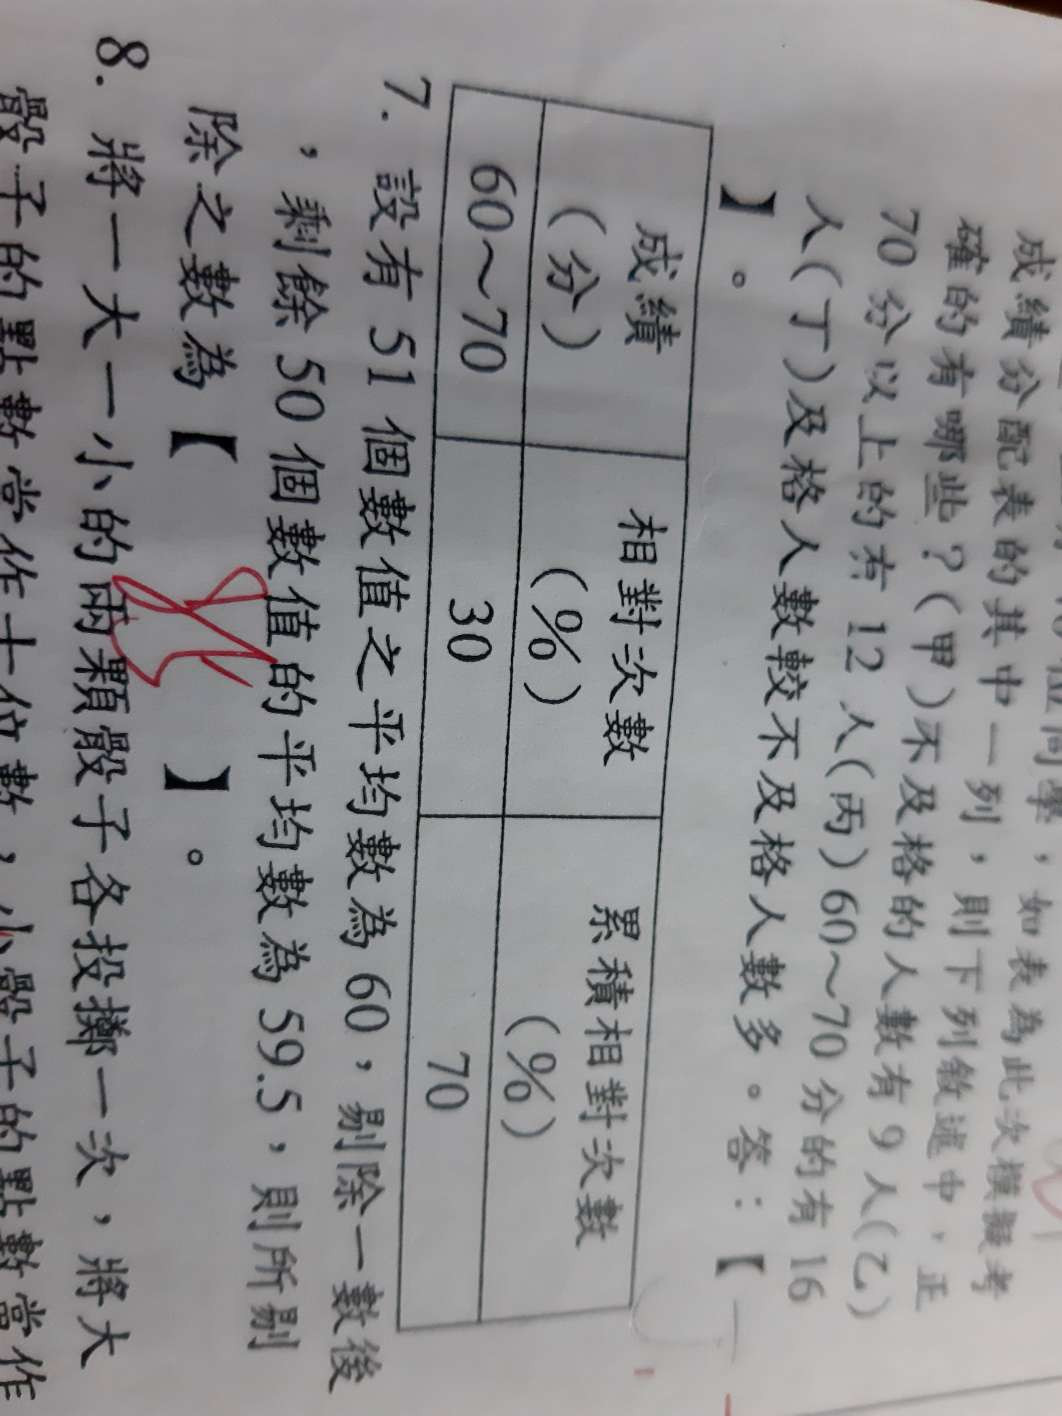 成績分配表的其中一列，則下列敘述中，正
確的有哪些？(甲)不及格的人數有 9 人(乙)
70 分以上的有 12 人(丙)60～70 分的有 16
人(丁)及格人數較不及格人數多。答：【
】。
成績(分) 相對次數(%) 累積相對次數(%)
60～70 30 70
7. 設有 51 個數值之平均數為 60，剔除一數後
，剩餘 50 個數值的平均數為 59.5，則所剔
除之數為【 85 】。
8. 將一大一小的兩顆骰子各投擲一次，將大
骰子的點數當作十位數，小骰子的點數當作